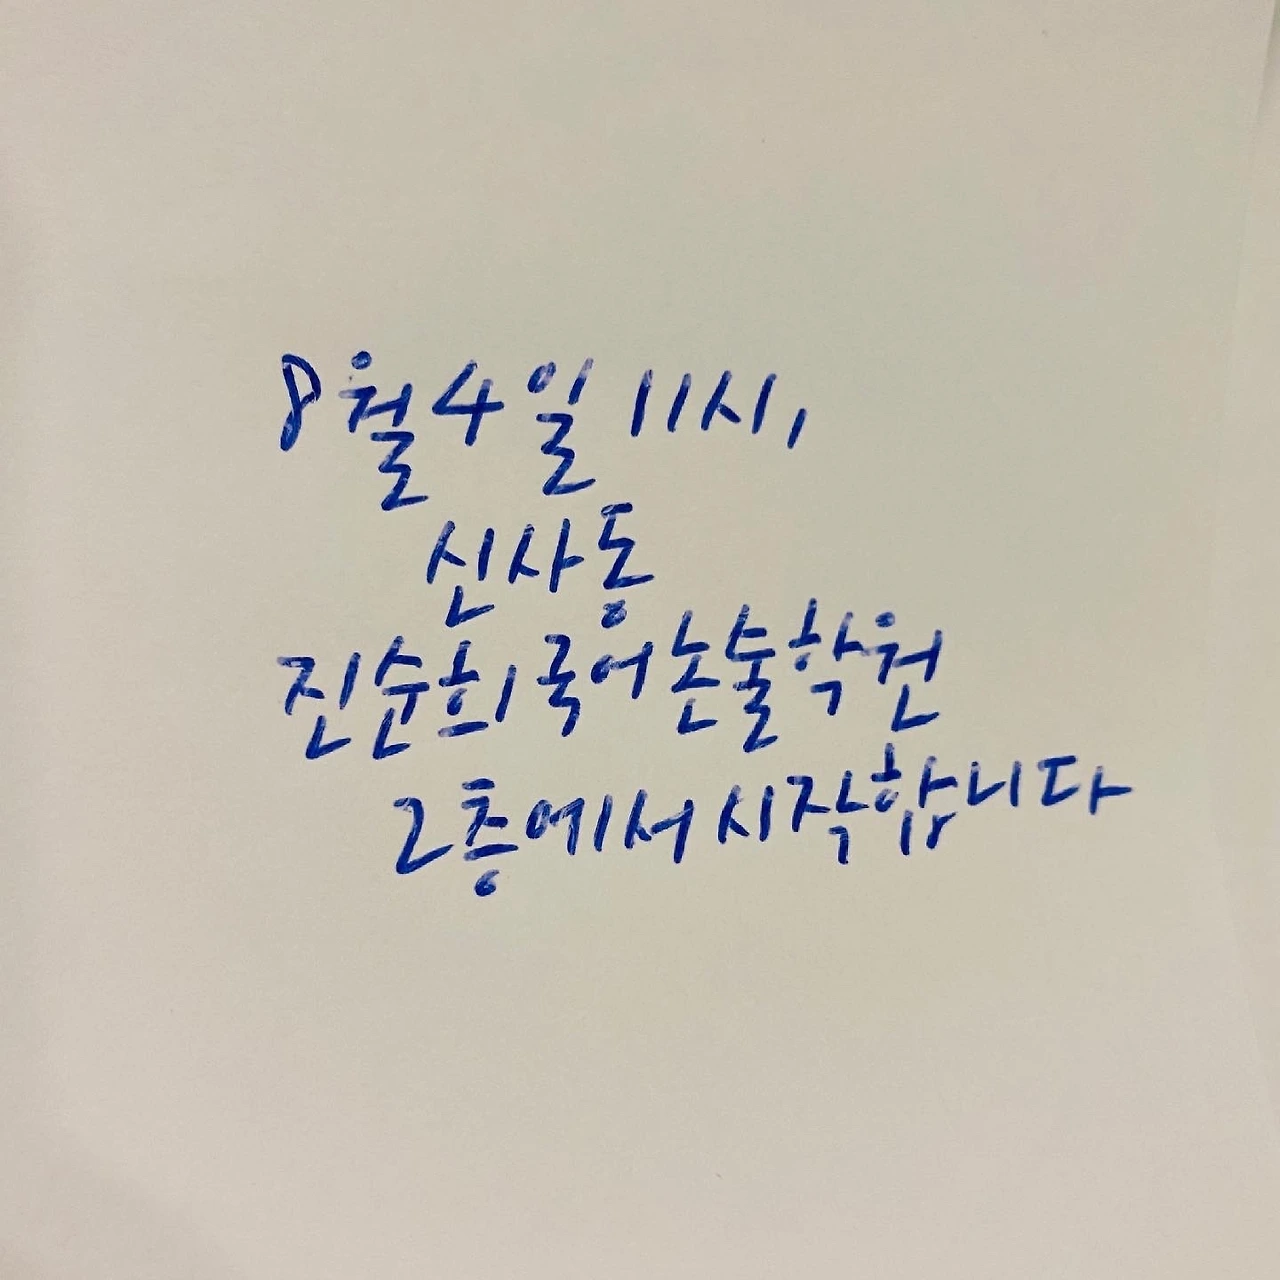 8월 4일 11시,
신사동
진순희국어논술학원
2층에서 시작합니다